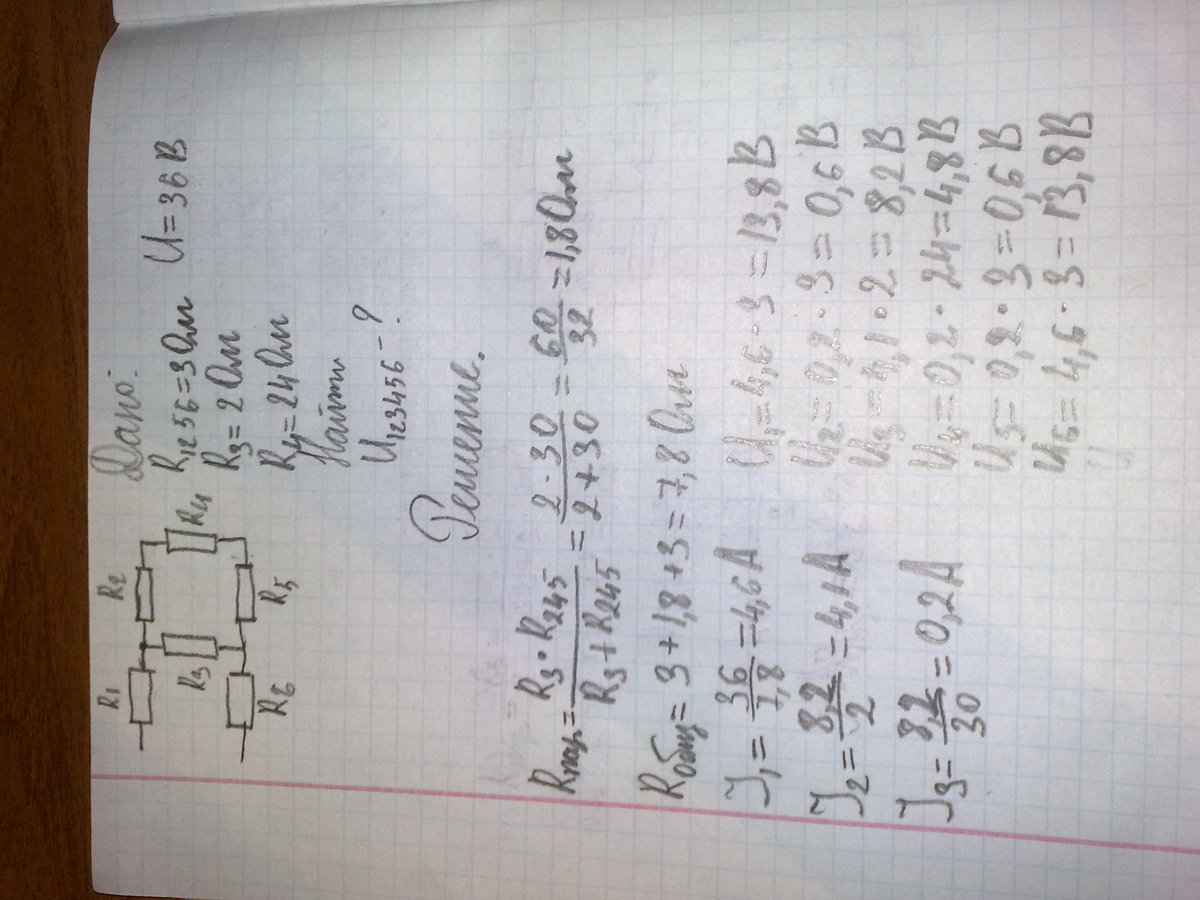 R1 R2
R3 R4
R6 R5
Дано:
R1256=3Ом U=36В
R3=2Ом
R4=24Ом
Найти
U123456-?
Решение.
Rпар=R3·R245/R3+R245=2·30/2+30=60/32=1,8Ом
Rобщ=3+1,8+3=7,8Ом
J1=36/7,8=4,6А
J2=8,2/2=4,1А
J3=8,2/30=0,2А
U1=4,6·3=13,8В
U2=0,2·3=0,6В
U3=4,1·2=8,2В
U4=0,2·24=4,8В
U5=0,2·3=0,6В
U6=4,6·3=13,8В